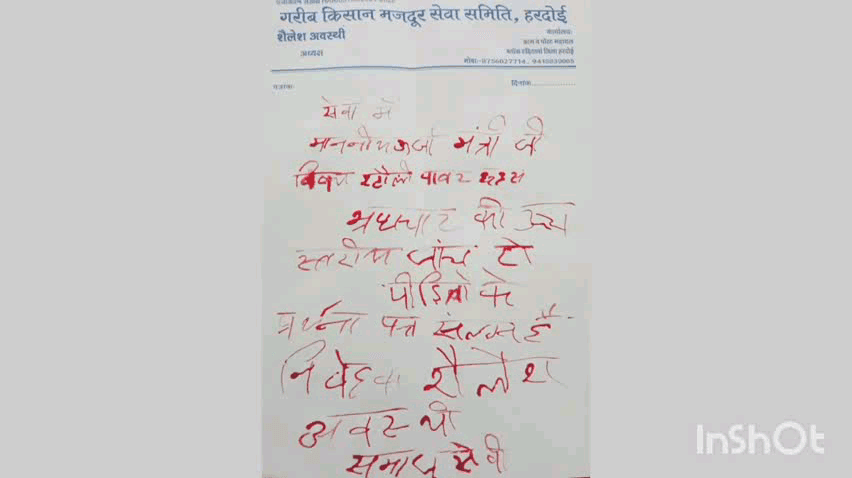 गरीब किसान मजदूर सेवा समिति, हरदोई
शैलेश अवस्थी
अध्यक्ष
कार्यालय:
ग्राम व पोस्ट
जिला हरदोई
मोबा:-9756627714, 9415039065
पत्रांक
दिनांक
सेवा में
माननीय ऊर्जा मंत्री जी
विषय पावर
भ्रष्टाचार की उच्च
स्तरीय जांच हो
पीड़ितो के
प्रर्थना पत्र संलग्न है
निवेदक शैलेश
अवस्थी
समाज सेवी
InShOt